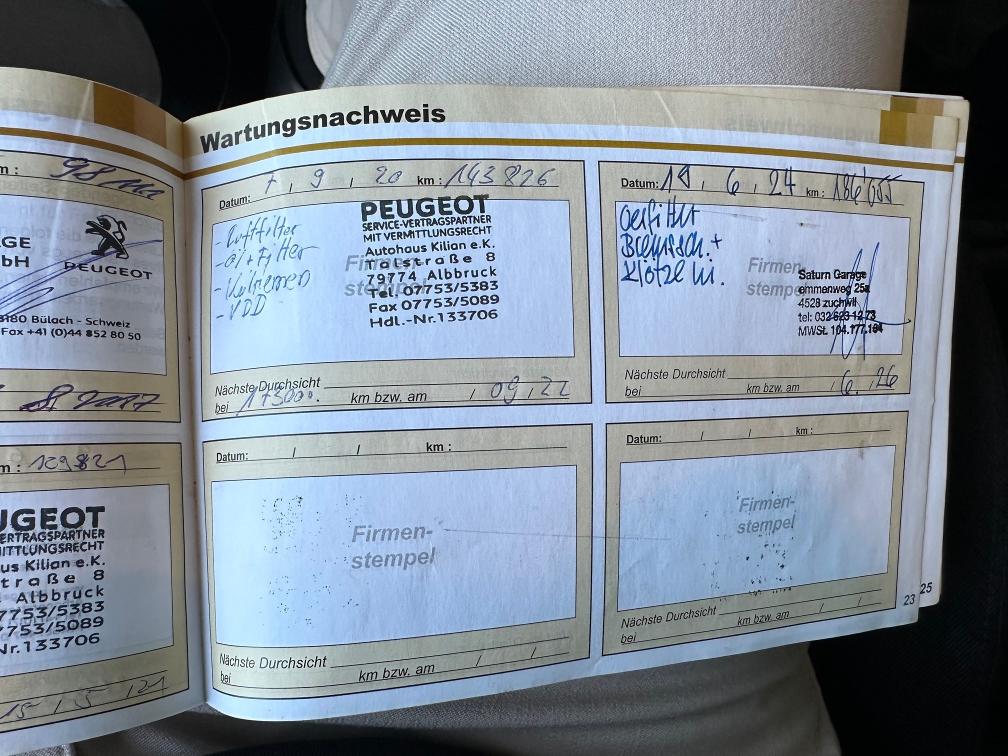 m : 98
AGE
bH
PEUGEOT
8180 Bülach - Schweiz
Fax +41 (0)44 852 80 50
8 2017
m : 129821
UGEOT
ERTRAGSPARTNER
MITTLUNGSRECHT
us Kilian e.K.
traße 8
Albbruck
7753/5383
7753/5089
Nr.133706
15 / 5 / 21
Wartungsnachweis
Datum: 7 / 9 / 20 km : 143826
- Luftfilter
- Öl+Filter
- Keilriemen
- VDD
Firmen-
stempel
PEUGEOT
SERVICE-VERTRAGSPARTNER
MIT VERMITTLUNGSRECHT
Autohaus Kilian e.K.
Talstraße 8
79774 Albbruck
Tel. 07753/5383
Fax 07753/5089
Hdl.-Nr.133706
Nächste Durchsicht
bei 173000. km bzw. am / 09 / 22
Datum: / 6 / 24 km : 186'055
Bremsch. +
Klötze
Firmen-
stempel
Saturn Garage
emmenweg 25a
4528 zuchwil
tel: 032 623 12 73
MWSt. 104.177.164
Nächste Durchsicht
bei km bzw. am / 6 / 26
Datum: / / km :
Firmen-
stempel
Nächste Durchsicht
bei km bzw. am / /
Datum: / / km :
Firmen-
stempel
Nächste Durchsicht
bei km bzw. am / /
23
25